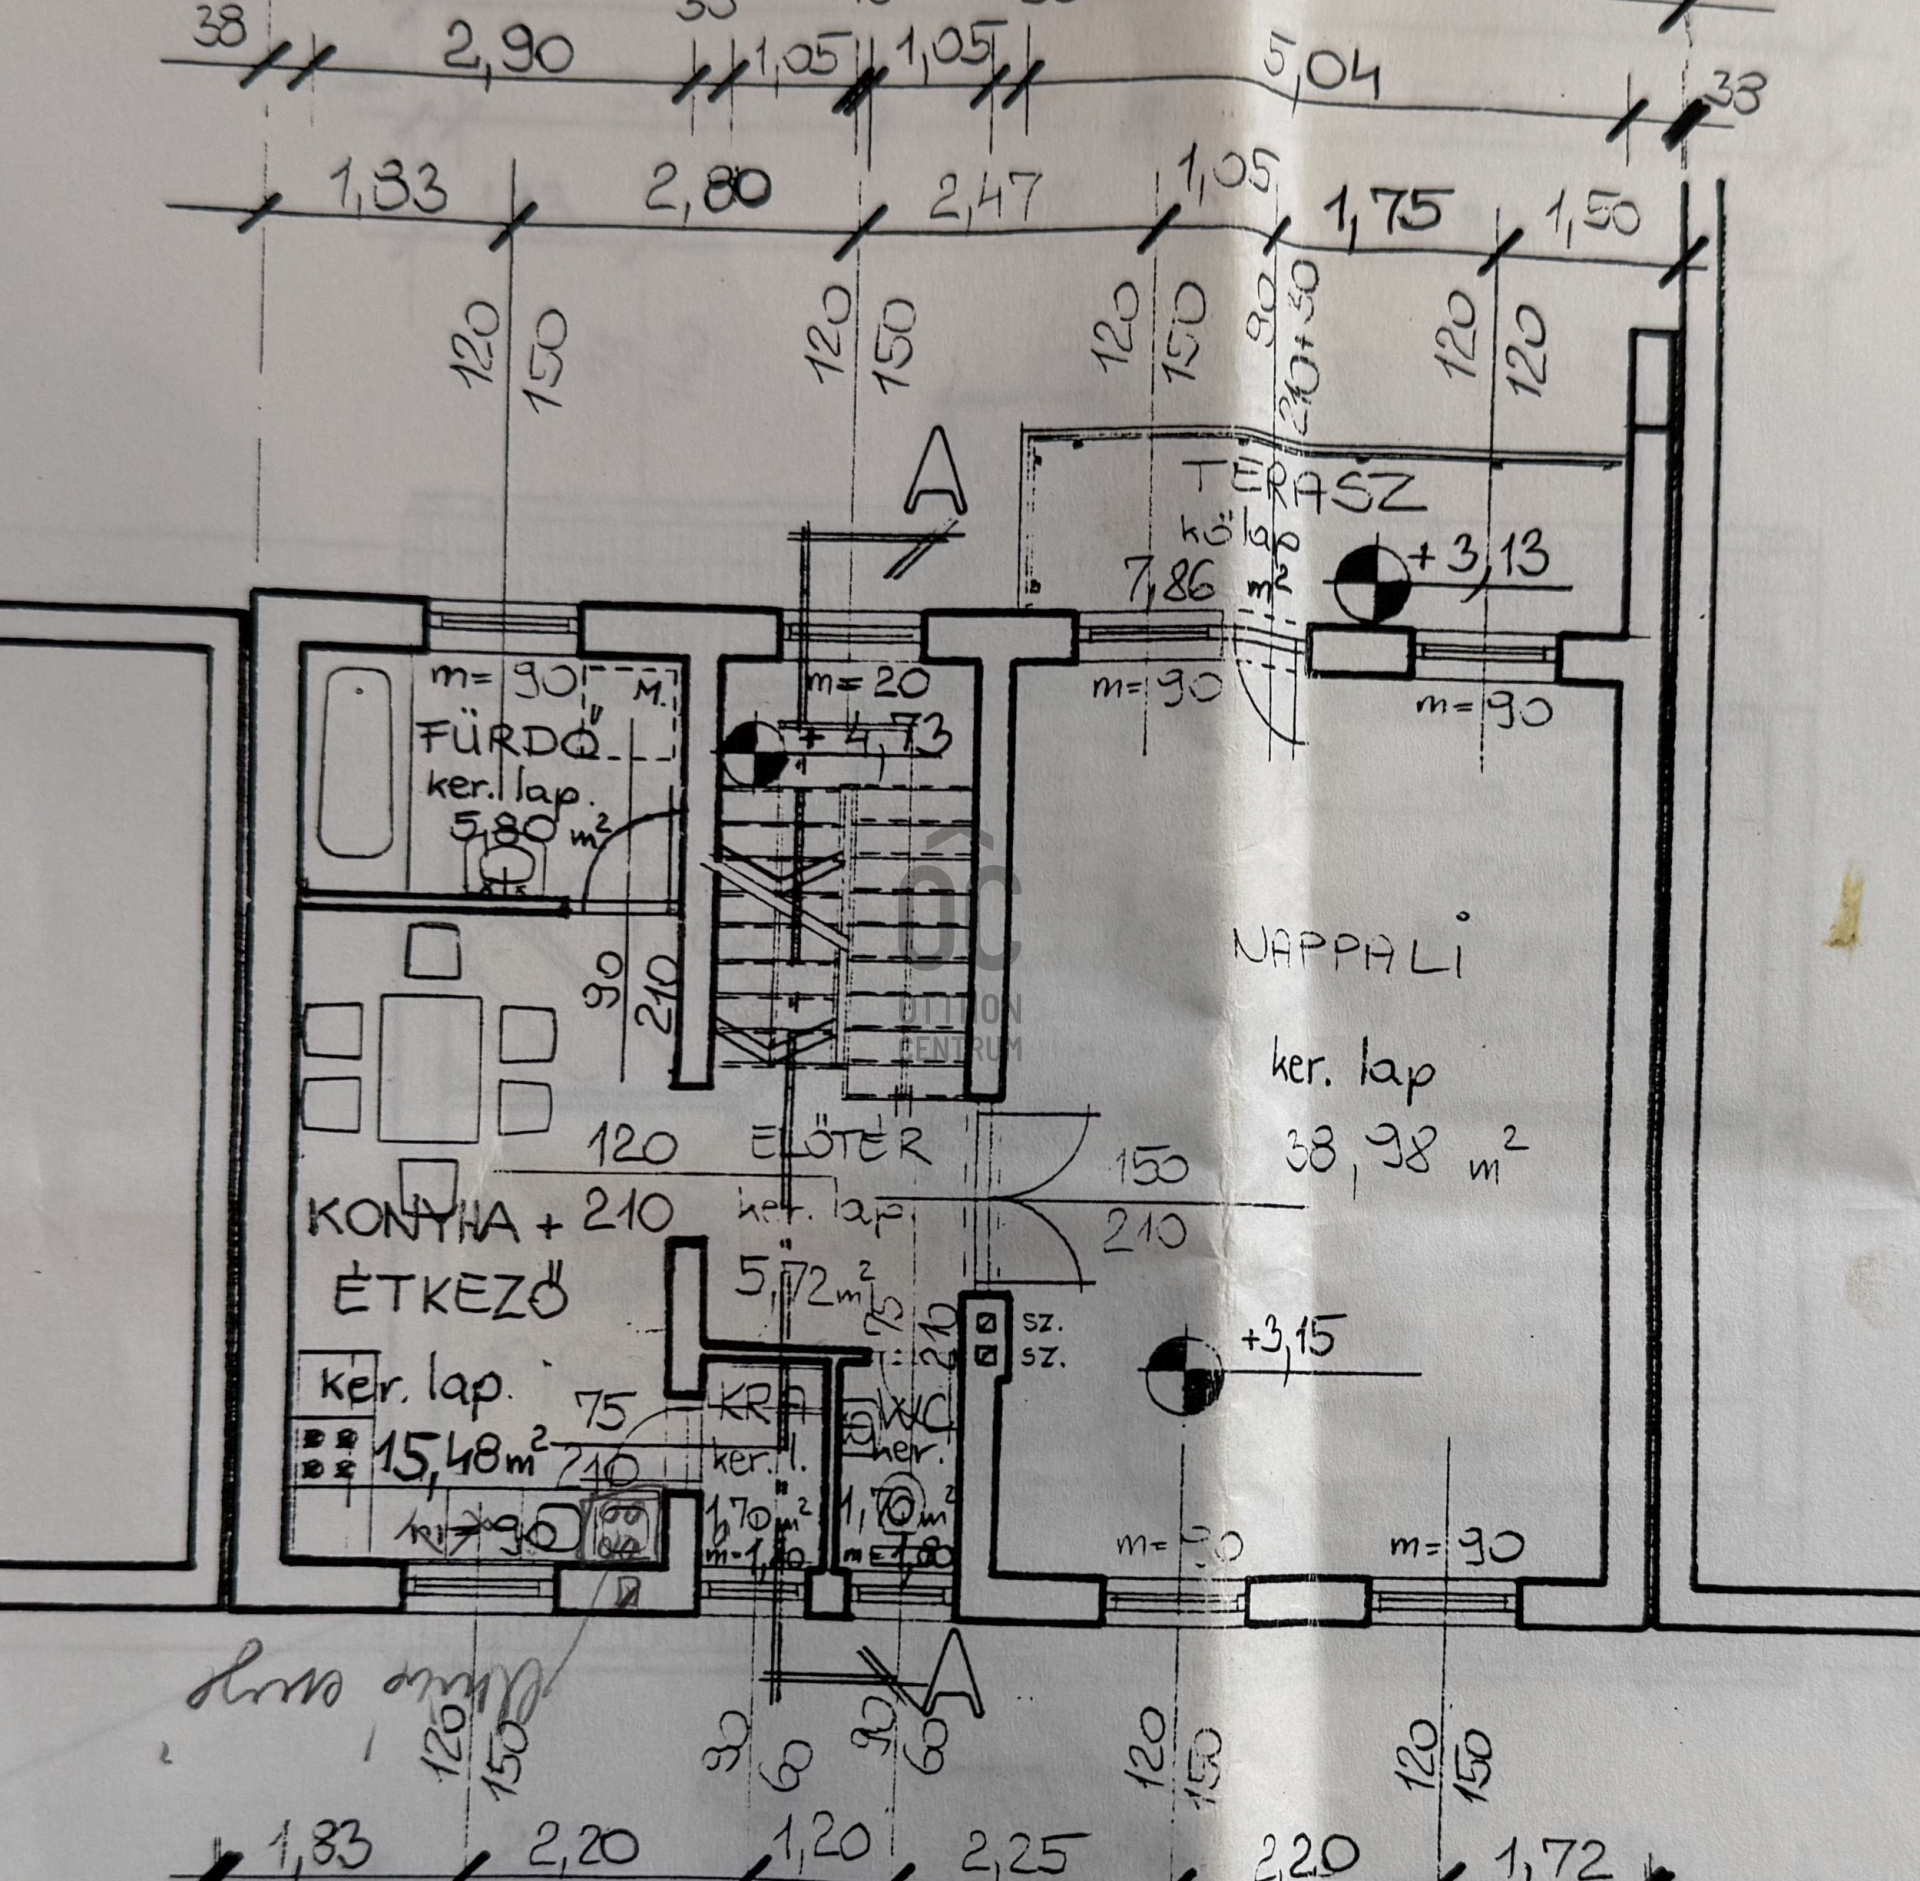 38 2,90 1,05 1,05 5,04 38
1,83 2,80 2,47 1,05 1,75 1,50
120 150
120 150
120 150
90 210+30
120 120
A
TERASZ
kőlap
7,86 m²
+3,13
m= 90
M.
m= 20
m= 90
m= 90
FÜRDŐ
ker. lap.
5,80 m²
+ 4,73
90 210
OC
OTTHON
CENTRUM
NAPPALI
ker. lap
38,98 m²
120
210
ELŐTÉR
ker. lap.
5,72 m²
150
210
KONYHA +
ÉTKEZŐ
ker. lap.
15,48 m²
75
210
75 210
sz.
sz.
+3,15
KRA
ker. l.
1,70 m²
WC
ker.
1,70 m²
m=1,80
m= 90
m= 90
m= 90
A
120 150
90 60
90 60
120 150
120 150
1,83 2,20 1,20 2,25 2,20 1,72